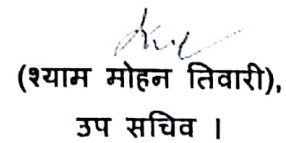 (श्याम मोहन तिवारी),
उप सचिव ।